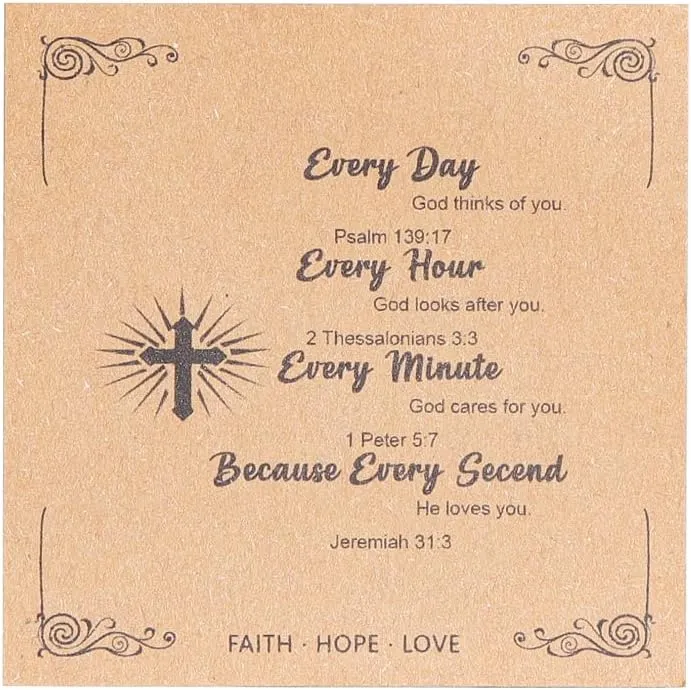 Every Day
God thinks of you.
Psalm 139:17
Every Hour
God looks after you.
2 Thessalonians 3:3
Every Minute
God cares for you.
1 Peter 5:7
Because Every Secend
He loves you.
Jeremiah 31:3
FAITH · HOPE · LOVE